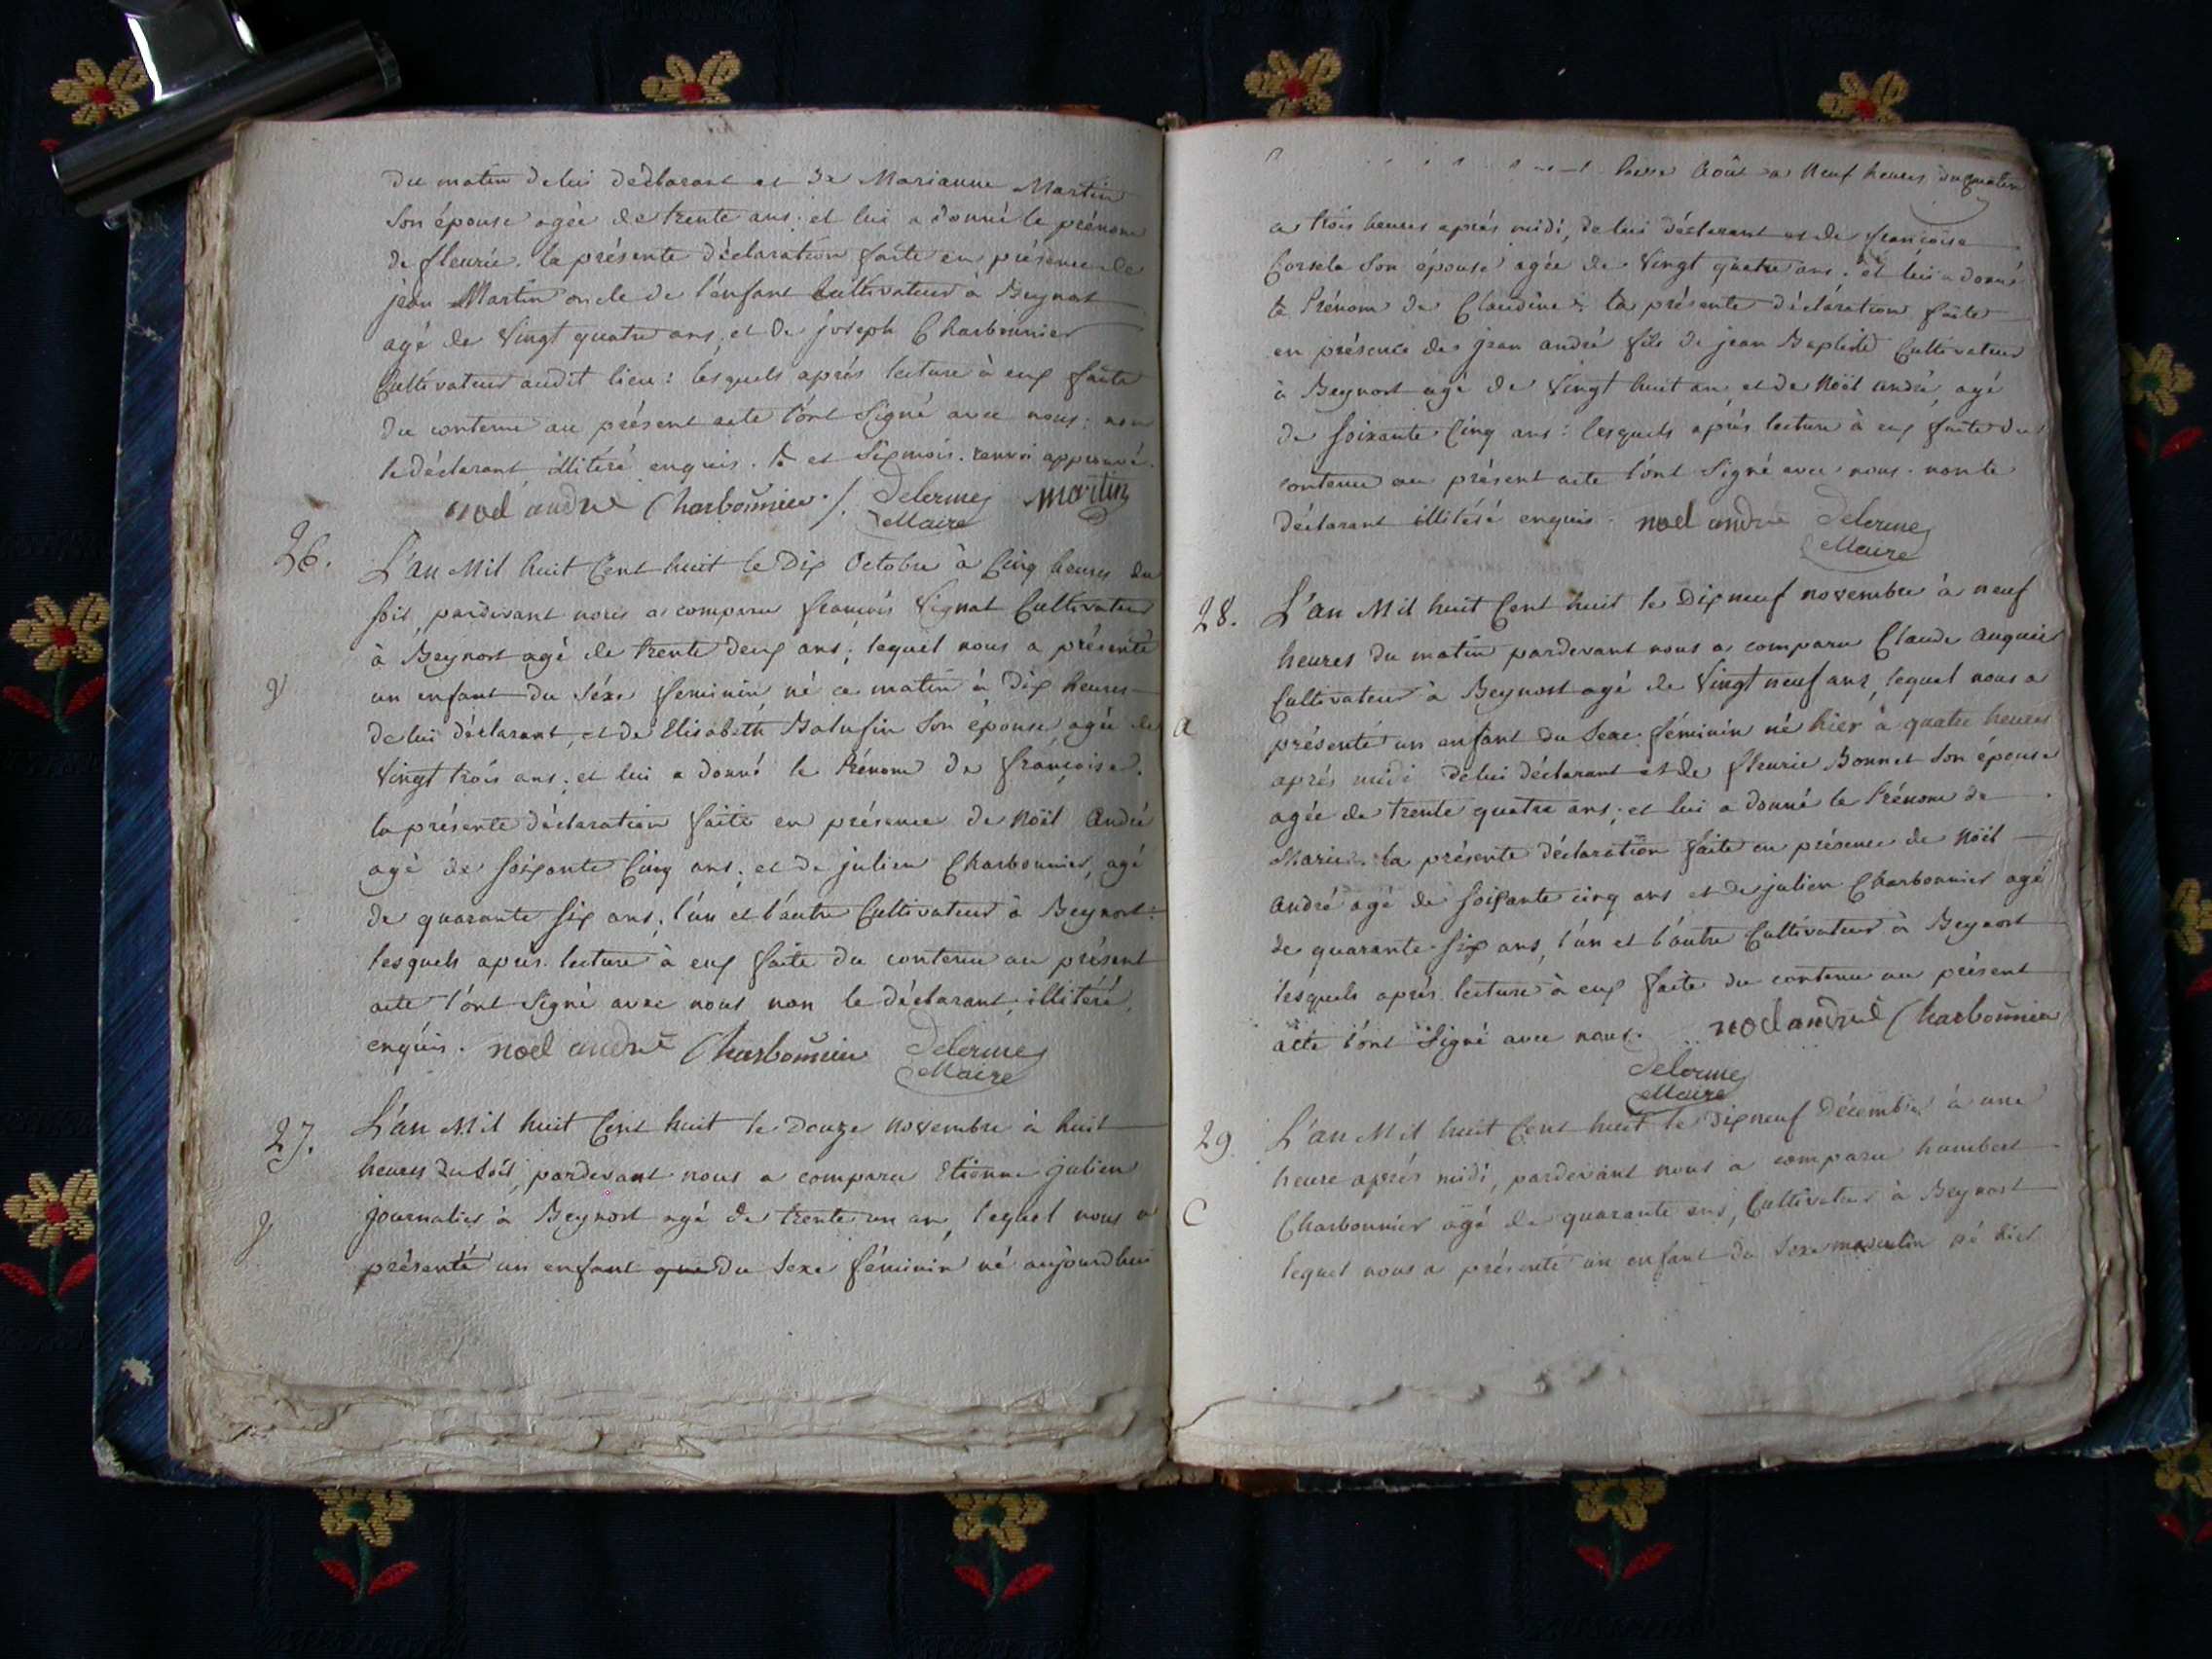 du matin de lui déclarant et de Marianne Martin
Son épouse agée de trente ans; et lui a donné le prénom
de fleurie. la présente déclaration faite en présence de
jean Martin oncle de l'enfant Cultivateur à Beynost
agé de Vingt quatre ans, et de joseph Charbonnier
Cultivateur audit lieu: lesquels aprés lecture à eux faite
du contenu au présent acte l'ont Signé avec nous: non
le déclarant illitéré enquis. et Six mois. renvoi approuvé.
noel andre Charbonnier /. Delorme Martin
Maire
26. L'an Mil huit Cent huit le Dix Octobre à Cinq heures du
Soir, pardevant nous a comparu françois Vignat Cultivateur
à Beynost agé de trente deux ans; lequel nous a présenté
un enfant du Séxe feminin né ce matin à Dix heures
de lui déclarant, et de Elisabeth Son épouse, agée de
Vingt trois ans; et lui a donné le Prénom de françoise.
la présente déclaration faite en présence de Noël André
agé de Soixante Cinq ans; et de julien Charbonnier, agé
de quarante Six ans; l'un et l'autre Cultivateur à Beynost:
lesquels après lecture à eux faite du contenu au présent
acte l'ont Signé avec nous non le déclarant, illitéré,
enquis. noel andre Charbonnier Delorme
Maire
27. L'an Mil huit Cent huit le Douze Novembre à huit
heures du Soir, pardevant nous a comparu Etienne julien
journalier à Beynost agé de trente un an, lequel nous a
présenté un enfant que du Sexe féminin né aujourdhui
Août a Neuf heures du matin
a trois heures aprés midi, de lui déclarant et de françoise
Son épouse agée de Vingt quatre ans. et lui a donné
le Prénom de Claudine: la présente déclaration faite
en présence de jean andré fils de jean Baptiste Cultivateur
à Beynost agé de Vingt huit an, et de Noël andré, agé
de Soixante Cinq ans: lesquels aprés lecture à eux faite du
contenu au présent acte l'ont Signé avec nous. non le
déclarant illitéré enquis. noel andre Delorme
Maire
28. L'an Mil huit Cent huit le Dix neuf novembre à neuf
heures du matin pardevant nous a comparu Claude
Cultivateur à Beynost agé de Vingt neuf ans, lequel nous a
a
présenté un enfant du Sexe féminin né hier à quatre heures
aprés midi de lui déclarant et de fleurie Bonnet Son épouse
agée de trente quatre ans; et lui a donné le Prénom de
Marie. la présente déclaration faite en présence de Noël
André agé de Soixante cinq ans et de julien Charbonnier agé
de quarante Six ans, l'un et l'autre Cultivateur à Beynost
lesquels aprés lecture à eux faite du contenu au présent
acte l'ont Signé avec nous. noel andre Charbonnier
Delorme
Maire
29. L'an Mil huit Cent huit le Dix neuf Décembre à une
heure aprés midi, pardevant nous a comparu humbert
C
Charbonnier agé de quarante ans, Cultivateur à Beynost
lequel nous a présenté un enfant du Sexe masculin né hier